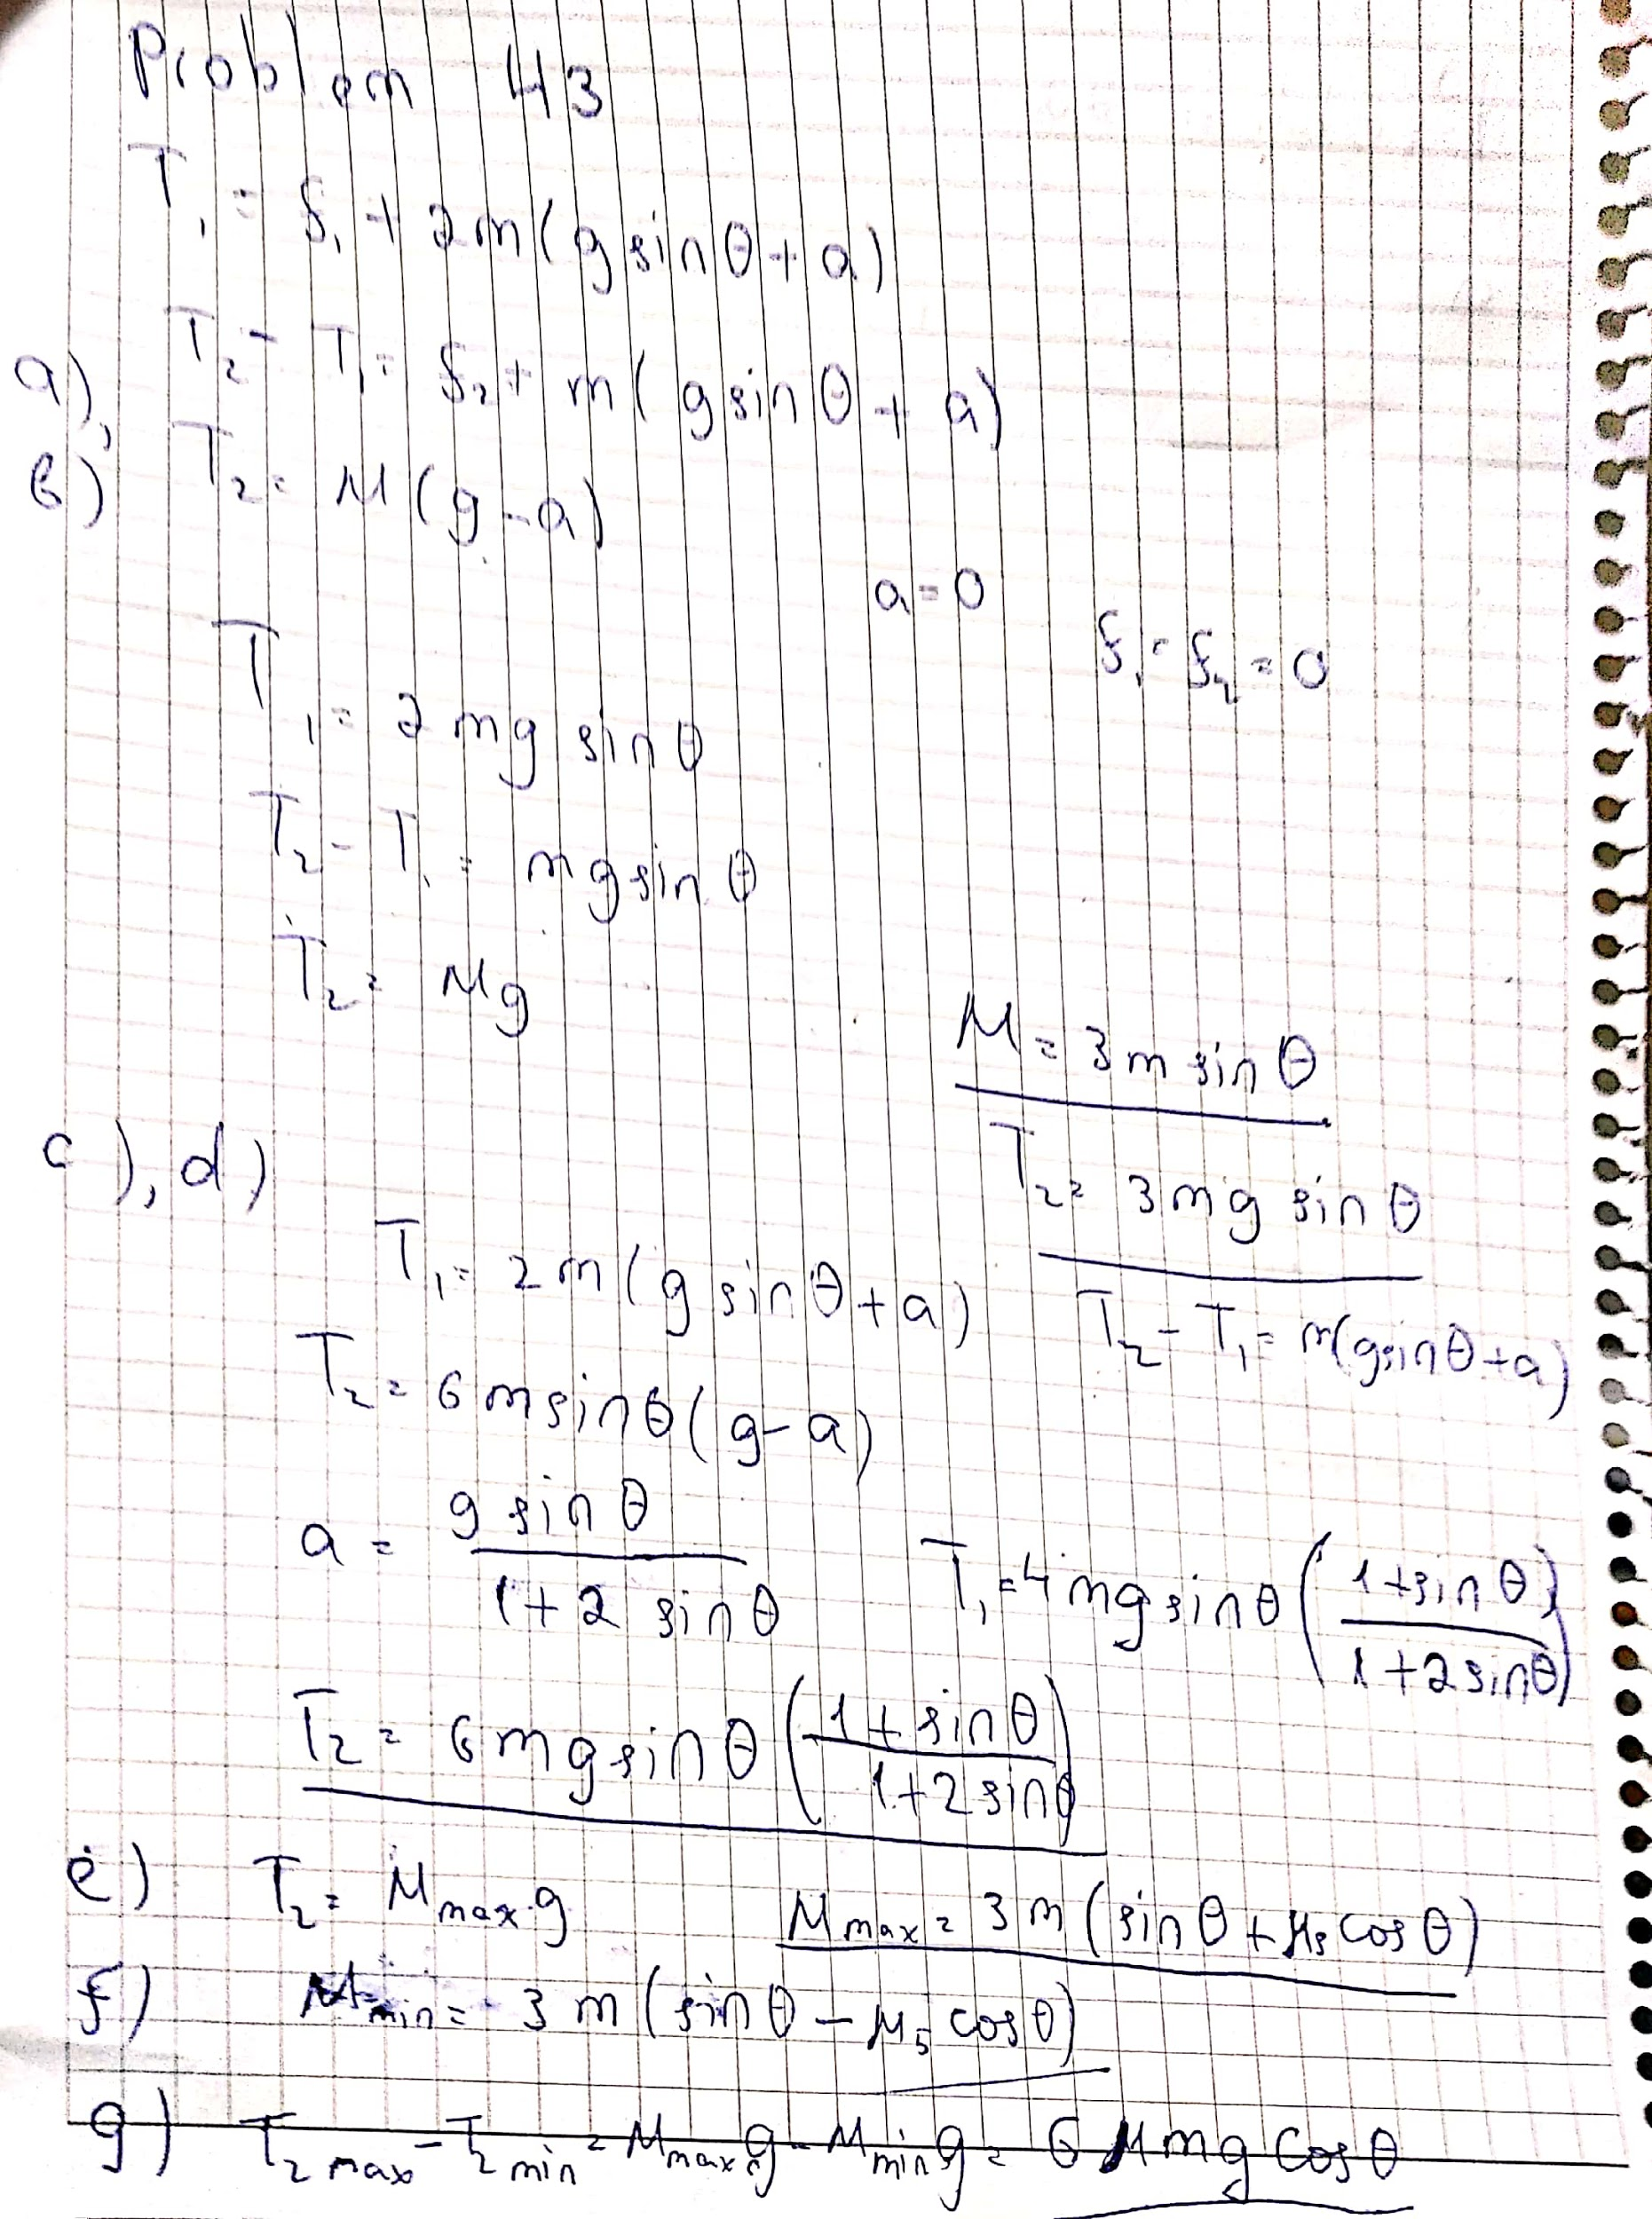 Problem 43
T₁ = f₁ + 2m(g sinθ + a)
a), T₂ - T₁ = f₂ + m(g sinθ + a)
b) T₂ = M(g - a)
a = 0
f₁ = f₂ = 0
T₁ = 2mg sinθ
T₂ - T₁ = mg sinθ
T₂ = Mg
M = 3m sinθ
T₂ = 3mg sinθ
c), d)
T₁ = 2m(g sinθ + a) T₂ - T₁ = m(g sinθ + a)
T₂ = 6m sinθ(g - a)
a = g sinθ / 1 + 2 sinθ T₁ = 4mg sinθ (1 + sinθ / 1 + 2 sinθ)
T₂ = 6mg sinθ (1 + sinθ / 1 + 2 sinθ)
e) T₂ = Mmax·g Mmax = 3m(sinθ + μs cosθ)
f) Mmin = 3m(sinθ - μs cosθ)
g) T₂max - T₂min = Mmax g - Mmin g = 6μmg cosθ